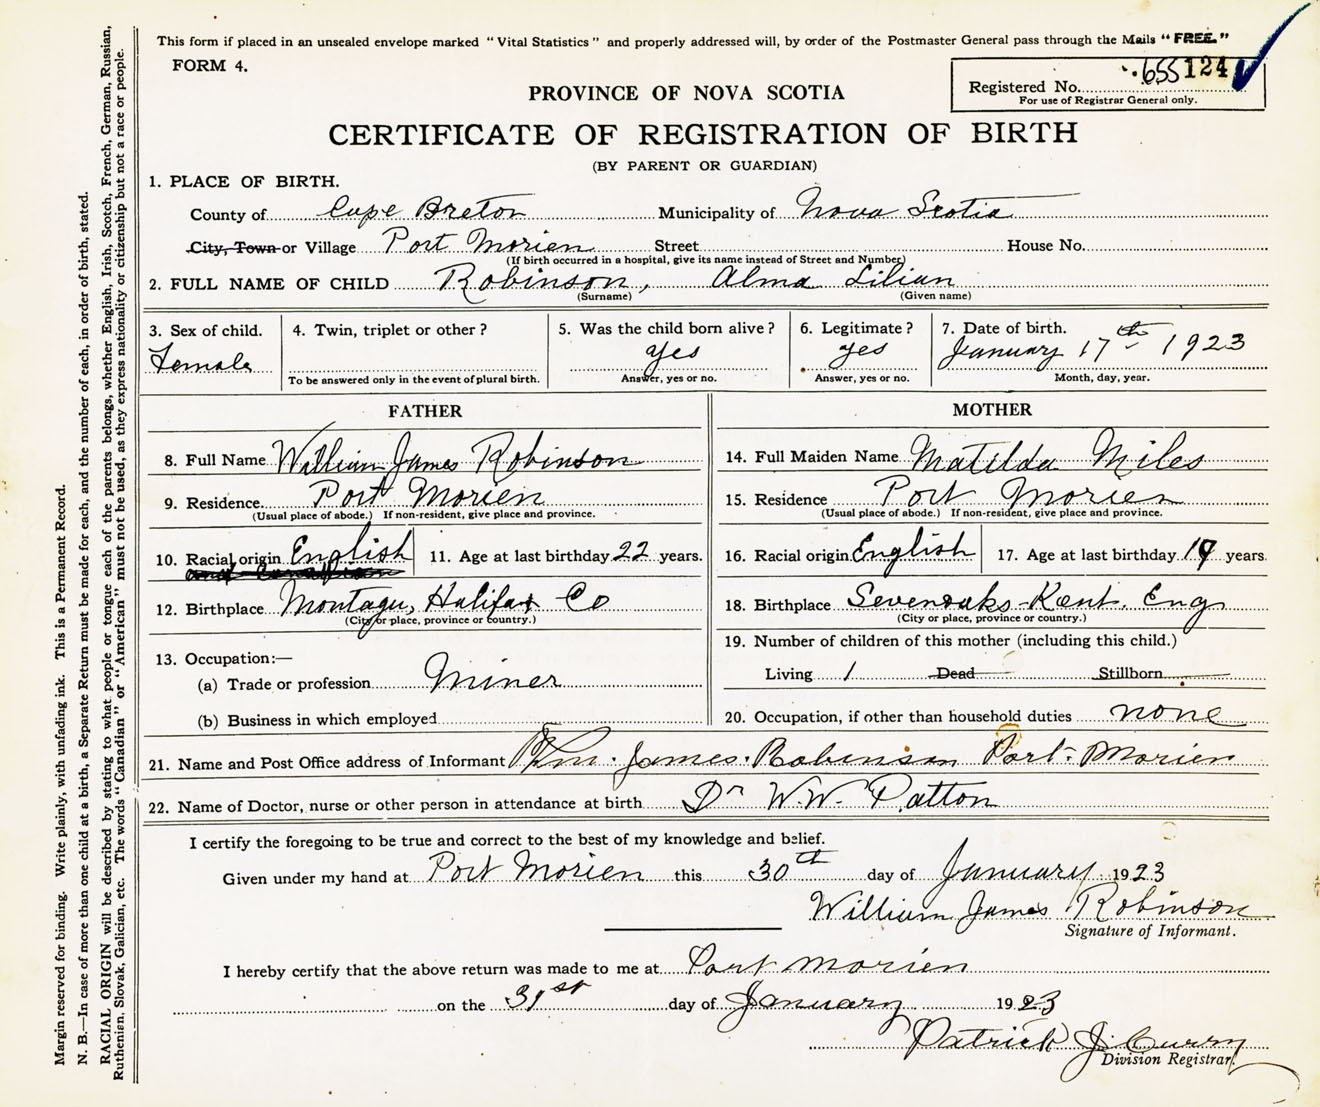 This form if placed in an unsealed envelope marked "Vital Statistics" and properly addressed will, by order of the Postmaster General pass through the Mails "FREE."
FORM 4.
655 124
Registered No.
For use of Registrar General only.
PROVINCE OF NOVA SCOTIA
CERTIFICATE OF REGISTRATION OF BIRTH
(BY PARENT OR GUARDIAN)
1. PLACE OF BIRTH.
County of Cape Breton Municipality of Nova Scotia
City, Town or Village Port Morien Street House No.
(If birth occurred in a hospital, give its name instead of Street and Number)
2. FULL NAME OF CHILD Robinson, Alma Lilian
(Surname) (Given name)
3. Sex of child. 4. Twin, triplet or other? 5. Was the child born alive? 6. Legitimate? 7. Date of birth.
Female yes yes January 17th 1923
To be answered only in the event of plural birth. Answer, yes or no. Answer, yes or no. Month, day, year.
FATHER
8. Full Name William James Robinson
9. Residence. Port Morien
(Usual place of abode.) If non-resident, give place and province.
10. Racial origin English 11. Age at last birthday 22 years.
12. Birthplace Montagu, Halifax Co
(City or place, province or country.)
13. Occupation:—
(a) Trade or profession Miner
(b) Business in which employed
MOTHER
14. Full Maiden Name Matilda Miles
15. Residence Port Morien
(Usual place of abode.) If non-resident, give place and province.
16. Racial origin English 17. Age at last birthday 19 years.
18. Birthplace Sevenoaks Kent. Eng
(City or place, province or country.)
19. Number of children of this mother (including this child.)
Living 1 Dead Stillborn
20. Occupation, if other than household duties none
21. Name and Post Office address of Informant Wm. James Robinson Port Morien
22. Name of Doctor, nurse or other person in attendance at birth Dr W.W. Patton
I certify the foregoing to be true and correct to the best of my knowledge and belief.
Given under my hand at Port Morien this 30th day of January 1923
William James Robinson
Signature of Informant.
I hereby certify that the above return was made to me at Port Morien
on the 31st day of January 1923
Patrick J. Curry
Division Registrar.
Margin reserved for binding. Write plainly, with unfading ink. This is a Permanent Record.
N. B.—In case of more than one child at a birth, a Separate Return must be made for each, and the number of each, in order of birth, stated.
RACIAL ORIGIN will be described by stating to what people or tongue each of the parents belongs, whether English, Irish, Scotch, French, German, Russian,
Ruthenian, Slovak, Galician, etc. The words "Canadian" or "American" must not be used, as they express nationality or citizenship but not a race or people.